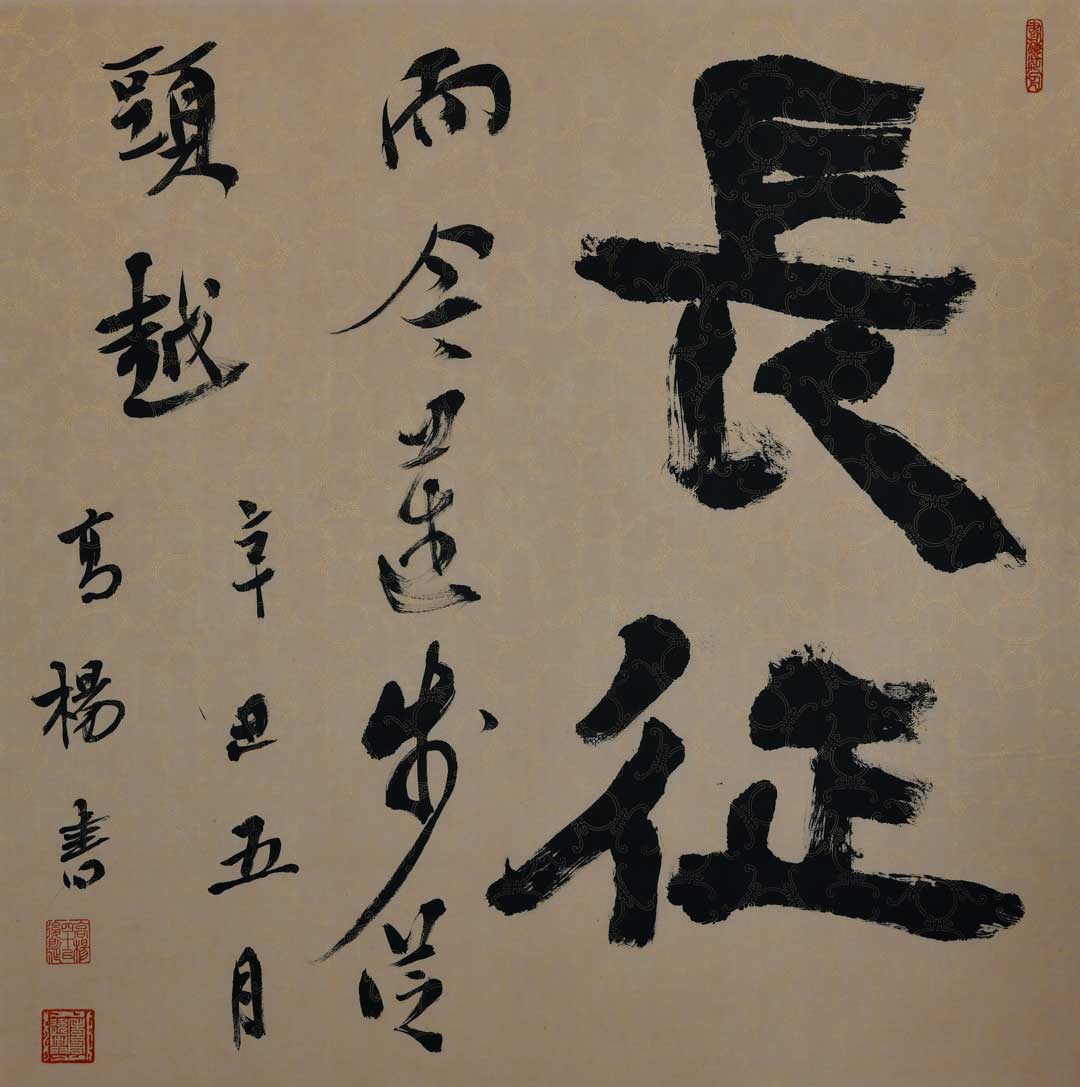 長征
而今邁步從
頭越
辛丑五月
高楊書